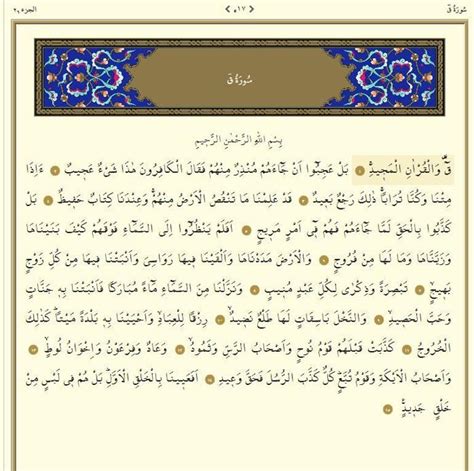 سُورَةُ قٓ
< ٥١٧ >
الجزء ٢٦
سُورَةُ قٓ
بِسْمِ اللّٰهِ الرَّحْمٰنِ الرَّحِيمِ
قٓ وَالْقُرْاٰنِ الْمَجِيدِۚ ﴿١﴾ بَلْ عَجِبُٓوا اَنْ جَٓاءَهُمْ مُنْذِرٌ مِنْهُمْ فَقَالَ الْكَافِرُونَ هٰذَا شَيْءٌ عَجِيبٌۚ ﴿٢﴾ ءَاِذَا
مِتْنَا وَكُنَّا تُرَاباًۚ ذٰلِكَ رَجْعٌ بَعِيدٌ ﴿٣﴾ قَدْ عَلِمْنَا مَا تَنْقُصُ الْاَرْضُ مِنْهُمْۚ وَعِنْدَنَا كِتَابٌ حَفِيظٌ ﴿٤﴾ بَلْ
كَذَّبُوا بِالْحَقِّ لَمَّا جَٓاءَهُمْ فَهُمْ فٓي اَمْرٍ مَرِيجٍ ﴿٥﴾ اَفَلَمْ يَنْظُرُٓوا اِلَى السَّمَٓاءِ فَوْقَهُمْ كَيْفَ بَنَيْنَاهَا
وَزَيَّنَّاهَا وَمَا لَهَا مِنْ فُرُوجٍ ﴿٦﴾ وَالْاَرْضَ مَدَدْنَاهَا وَاَلْقَيْنَا فِيهَا رَوَاسِيَ وَاَنْبَتْنَا فِيهَا مِنْ كُلِّ زَوْجٍ
بَهِيجٍۙ ﴿٧﴾ تَبْصِرَةً وَذِكْرٰى لِكُلِّ عَبْدٍ مُنِيبٍ ﴿٨﴾ وَنَزَّلْنَا مِنَ السَّمَٓاءِ مَٓاءً مُبَارَكاً فَاَنْبَتْنَا بِهٖ جَنَّاتٍ
وَحَبَّ الْحَصِيدِۙ ﴿٩﴾ وَالنَّخْلَ بَاسِقَاتٍ لَهَا طَلْعٌ نَضِيدٌۙ ﴿١٠﴾ رِزْقاً لِلْعِبَادِۙ وَاَحْيَيْنَا بِهٖ بَلْدَةً مَيْتاًۜ كَذٰلِكَ
الْخُرُوجُ ﴿١١﴾ كَذَّبَتْ قَبْلَهُمْ قَوْمُ نُوحٍ وَاَصْحَابُ الرَّسِّ وَثَمُودُۙ ﴿١٢﴾ وَعَادٌ وَفِرْعَوْنُ وَاِخْوَانُ لُوطٍۙ ﴿١٣﴾
وَاَصْحَابُ الْاَيْكَةِ وَقَوْمُ تُبَّعٍۜ كُلٌّ كَذَّبَ الرُّسُلَ فَحَقَّ وَعِيدِ ﴿١٤﴾ اَفَعَيِينَا بِالْخَلْقِ الْاَوَّلِۜ بَلْ هُمْ فِي لَبْسٍ مِنْ
خَلْقٍ جَدِيدٍ۟ ﴿١٥﴾